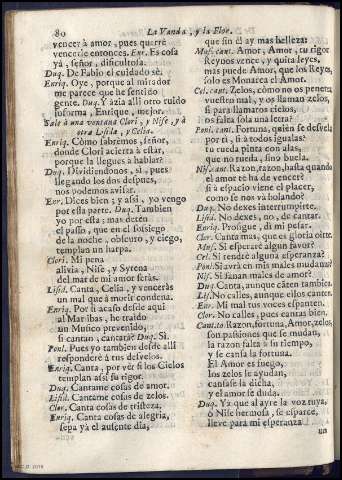 80
La Vanda, y la Flor.
vencer à amor, pues querrè
vencerle entonces. Enr. Es cosa
yà, señor, dificultosa.
Duq. De Fabio el cuidado sè.
Enriq. Oye, porque al mirador
me parece que he sentido
gente. Duq. Y àzia alli otro ruido
informa, Enrique, mejor.
Sale à una ventana Clori, y Nise, y à
otra Lisida, y Celia.
Enriq. Còmo sabremos, señor,
donde Clori acierta à estàr,
porque la llegues à hablar?
Duq. Dividiendonos, sì, pues
llegando los dos despues,
nos podemos avisar.
Enr. Dices bien; y assi, yo vengo
por esta parte. Duq. Tambien
yo por esta; mas detèn
el passo, que en el sossiego
de la noche, obscuro, y ciego,
templan un harpa.
Clori. Mi pena
alivia, Nise, y Syrena
del mar de mi amor seràs.
Lisid. Canta, Celia, y venceràs
un mal que à morir condena.
Enriq. Por si acaso desde aqui
al Mar ibas, he traìdo
un Musico prevenido,
si cantan, cantarà? Duq. Sì.
Ponl. Pues yo tambien desde alli
responderè à tus desvelos.
Enriq. Canta, por vèr si los Cielos
templan assi su rigor.
Duq. Cantame cosas de amor.
Lisid. Cantame cosas de zelos.
Clor. Canta cosas de tristeza.
Enriq. Canta cosas de alegria,
sepa yà el ausente dia,
que sin èl ay mas belleza:
Mus. cant. Amor, Amor, tu rigor
Reynos vence, y quita leyes,
mas puede Amor, que los Reyes,
solo es Monarca el Amor.
Cel. cant. Zelos, còmo no os penetra
vuestro mal, y os llaman zelos,
si para llamaros cielos,
os falta sola una letra?
Ponl. cant. Fortuna, quièn se desvela
por ti, si à todos igualas?
tu rueda pinta con alas,
que no rueda, sino buela.
Nis. cant. Razon, razon, hasta quando
el amor te ha de vencer?
si à espacio viene el placer,
como se nos và bolando?
Duq. No dexes interrumpirte.
Lisid. No dexes, no, de cantar.
Enriq. Prosigue, di mi pesar.
Clor. Canta mas, que es gloria oirte.
Mus. Si esperarè algun favor?
Cel. Si tendrè alguna esperanza?
Ponl. Si avrà en mis males mudanza?
Nis. Si sanan males de amor?
Duq. Canta, aunque càten tambien.
Lis. No calles, aunque ellos canten.
Enr. Mi mal tus voces espanten.
Clor. No calles, pues cantas bien.
Cant. to Razon, fortuna, Amor, zelos,
son passiones que se mudan,
la razon falta à su tiempo,
y se cansa la fortuna.
El Amor es fuego,
los zelos le ayudan,
cansase la dicha,
y el amor se duda.
Duq. Ya que al ayre la voz tuya,
ò Nise hermosa, se esparce,
lleve para mi esperanza